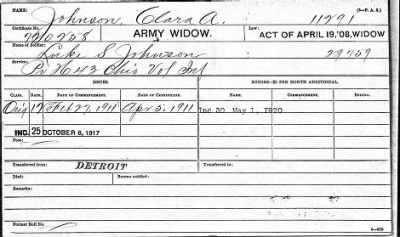 NAME: (3-P. A. S.)
Johnson, Clara A. 11291
Certificate No. ARMY WIDOW. LAW: ACT OF APRIL 19,'08, WIDOW
Name of Soldier:
Luke S. Johnson 29759
Service:
H 43 Ohio Vol Inf
ISSUES. $2 PER MONTH ADDITIONAL.
CLASS. RATE. DATE OF COMMENCEMENT. DATE OF CERTIFICATE. NAME. COMMENCEMENT. ENDING.
Orig 12 Feb 27, 1911 Apr 5, 1911 Inc 30 May 1, 1920
INC. 25 OCTOBER 6, 1917
Fees:
Transferred from DETROIT Transferred to
Died: Bureau notified:
Remarks:
Former Roll No.